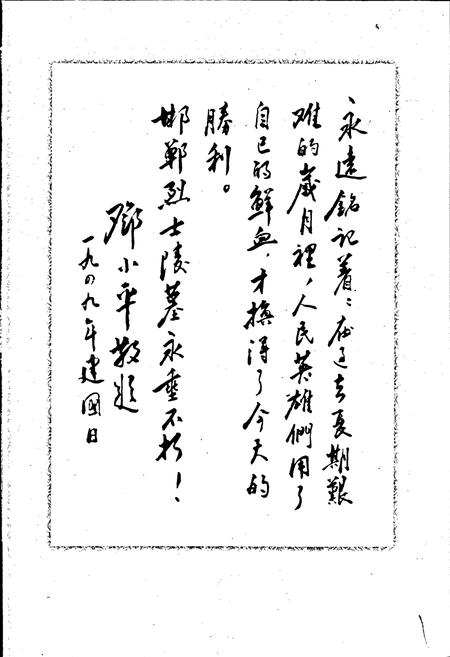 永遠銘記着：在过去長期艱
难的歲月裡，人民英雄們用了
自己的鮮血，才換得了今天的
勝利。
邯鄲烈士陵墓永垂不朽！
鄧小平敬題
一九四九年建國日